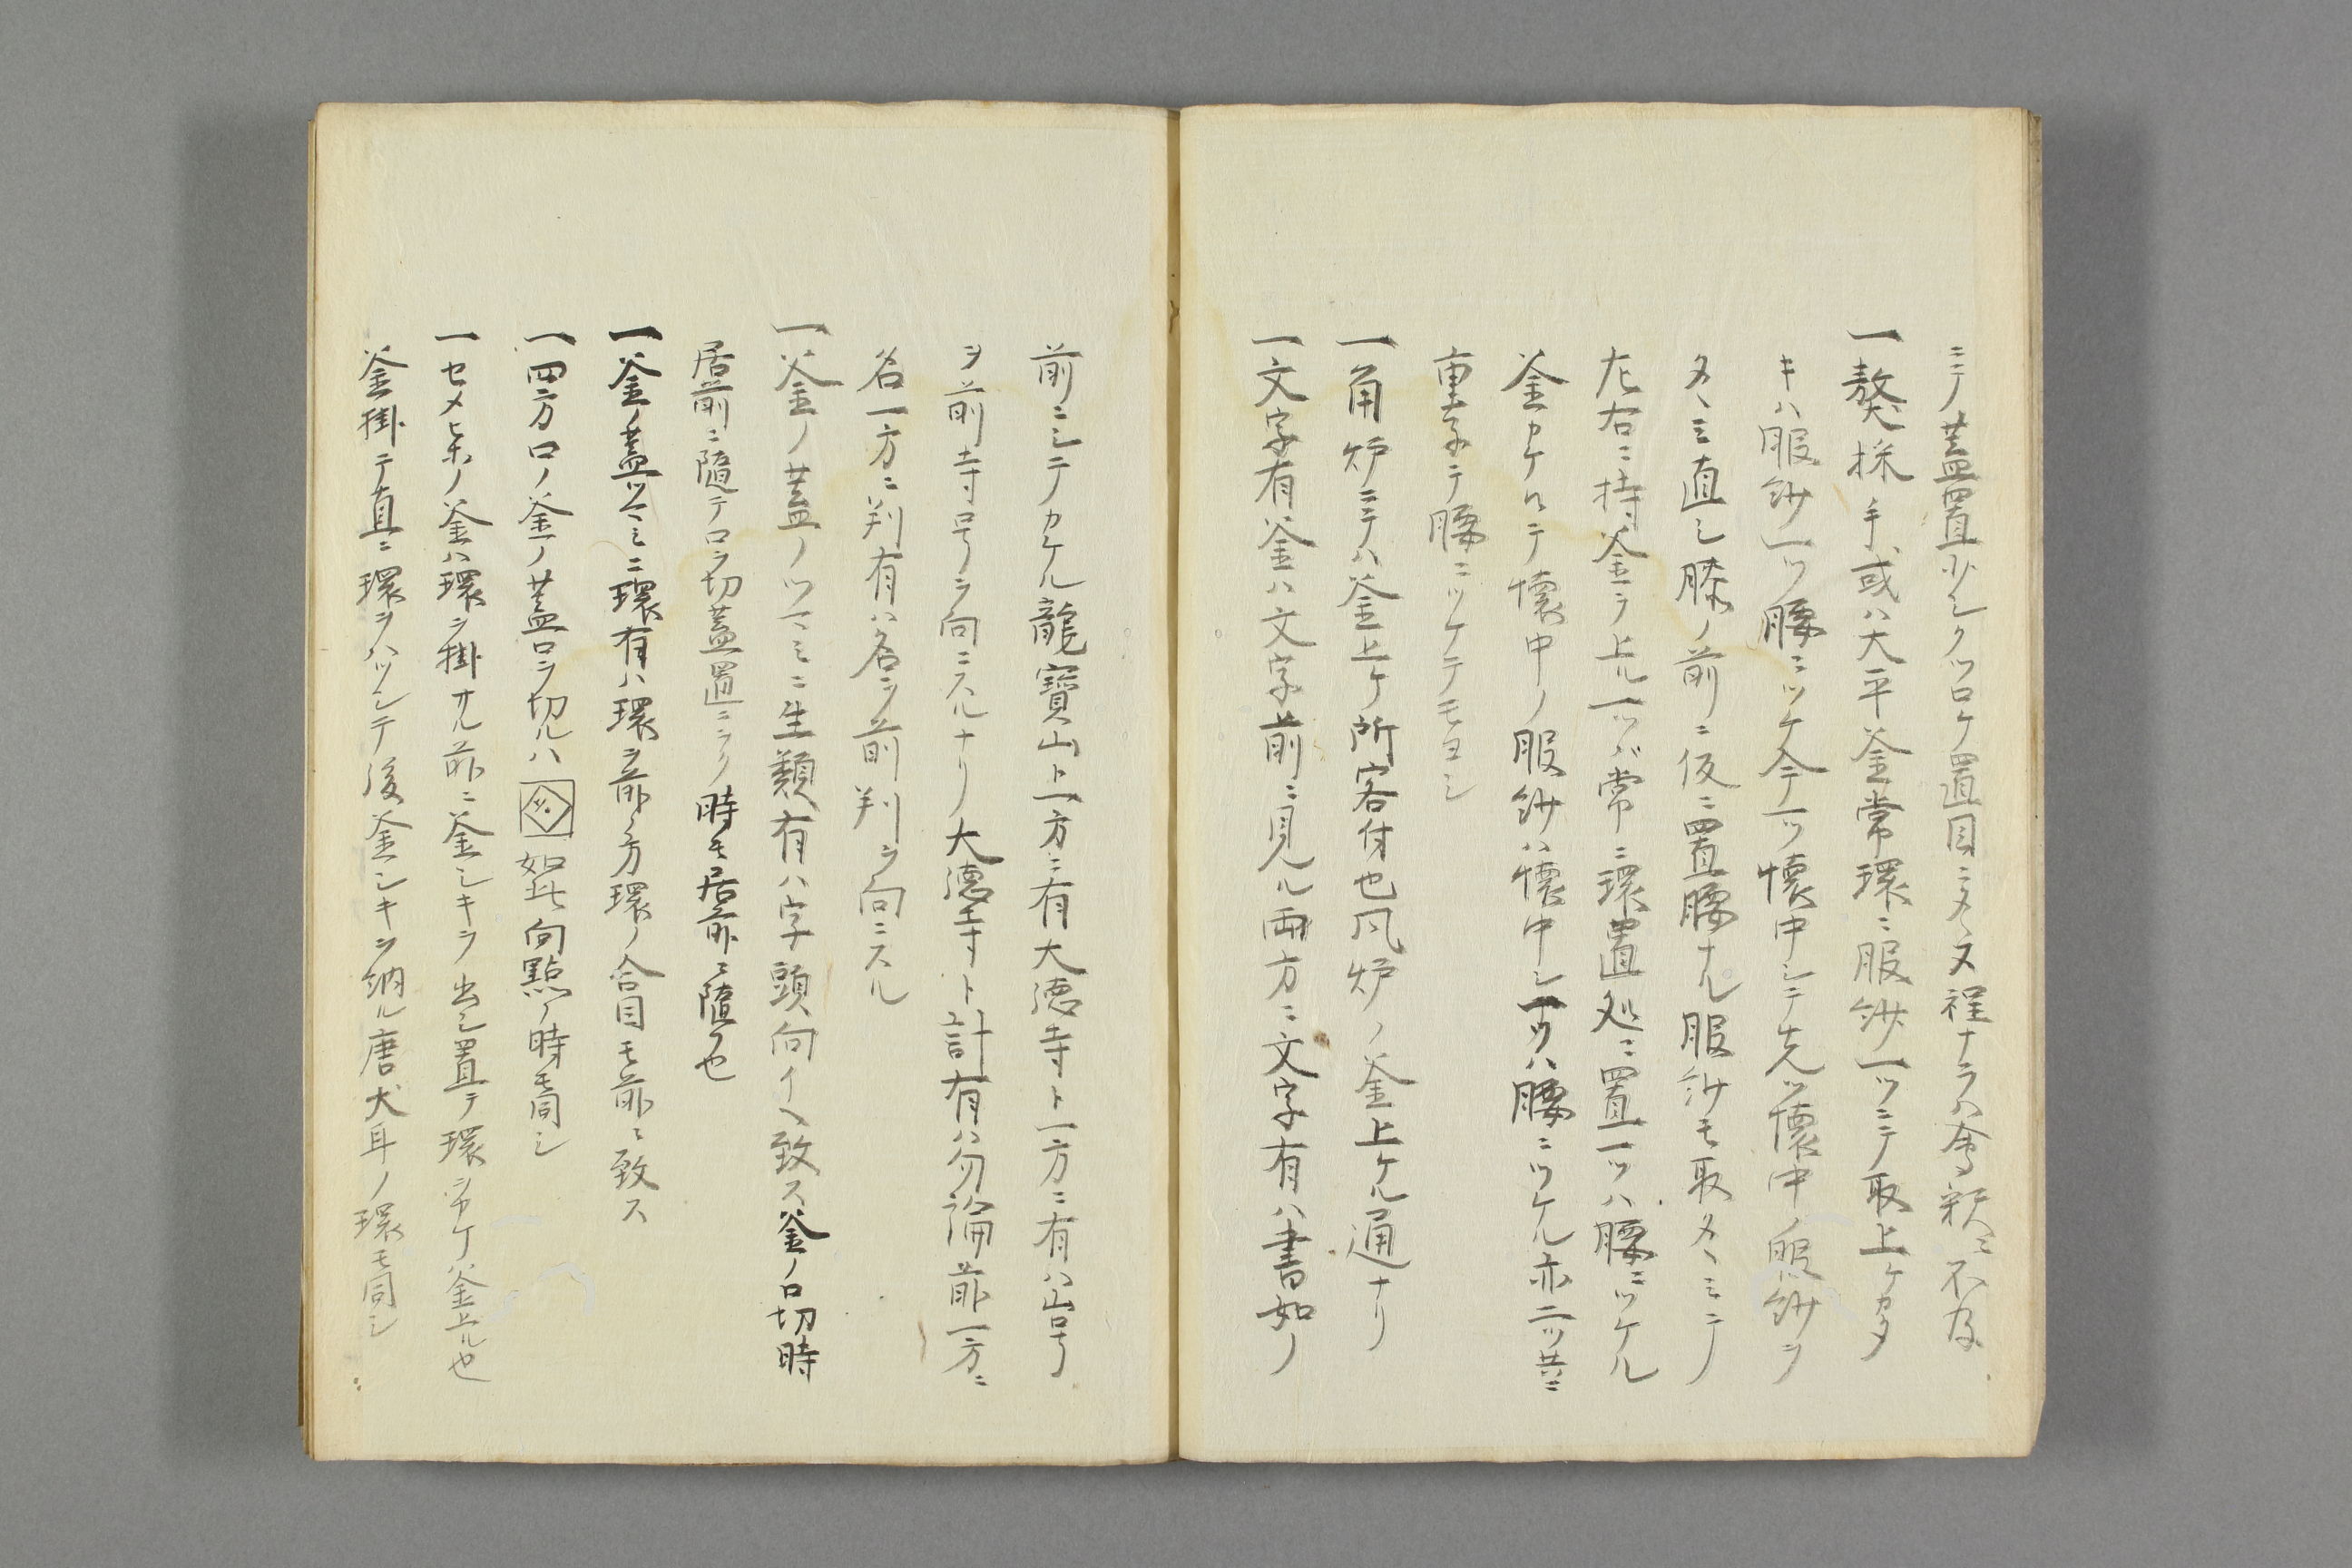 ニテ蓋置少シクツロケ置目ニタヽヌ程ナラハ会釈ニ不及
一繁採手或ハ大平釜常環ニ服紗一ツニテ取上ケカタ
キハ服紗一ツ腰ニツケ今一ツ懐中シテ先ツ懐中ノ服紗ヲ
タヽミ直シ膝ノ前ニ仮ニ置腰ナル服紗モ取タヽミテ
左右ニ持釜ヲ上ル一ツハ常ニ環置処ニ置一ツハ腰ニツケル
釜カケ テ懐中ノ服紗ハ懐中シ一ツハ腰ニツケル亦二ツ共ニ
重子テ腰ニツケテモヨシ
一角炉ニテハ釜上ケ所客付也風炉ノ釜上ケル通ナリ
一文字有釜ハ文字前ニ見ル両方ニ文字有ハ書如ノ
前ニシテカケル龍寳山ト一方ニ有大徳寺ト一方ニ有ハ山号
ヲ前寺号ヲ向ニスルナリ大徳寺ト計有ハ勿論前一方ニ
名一方ニ判有ハ名ヲ前判ヲ向ニスル
一釜ノ蓋ノツマミニ生類有ハ字頭向イヘ致ス釜ノ口切時
居前ニ随テロヲ切蓋置ニヲク時モ居前ニ随フ也
一釜ノ蓋ツマミニ環有ハ環ヲ前ノ方環ノ合目モ前ニ致ス
一四方口ノ釜ノ蓋口ヲ切ルハ 如此向點ノ時モ同シ
一セメヒ ノ釜ハ環ヲ掛サル前ニ釜シキヲ出シ置テ環ヲカケ釜上ル也
釜掛テ直ニ環ヲハツシテ後釜シキヲ納ル唐犬耳ノ環モ同シ